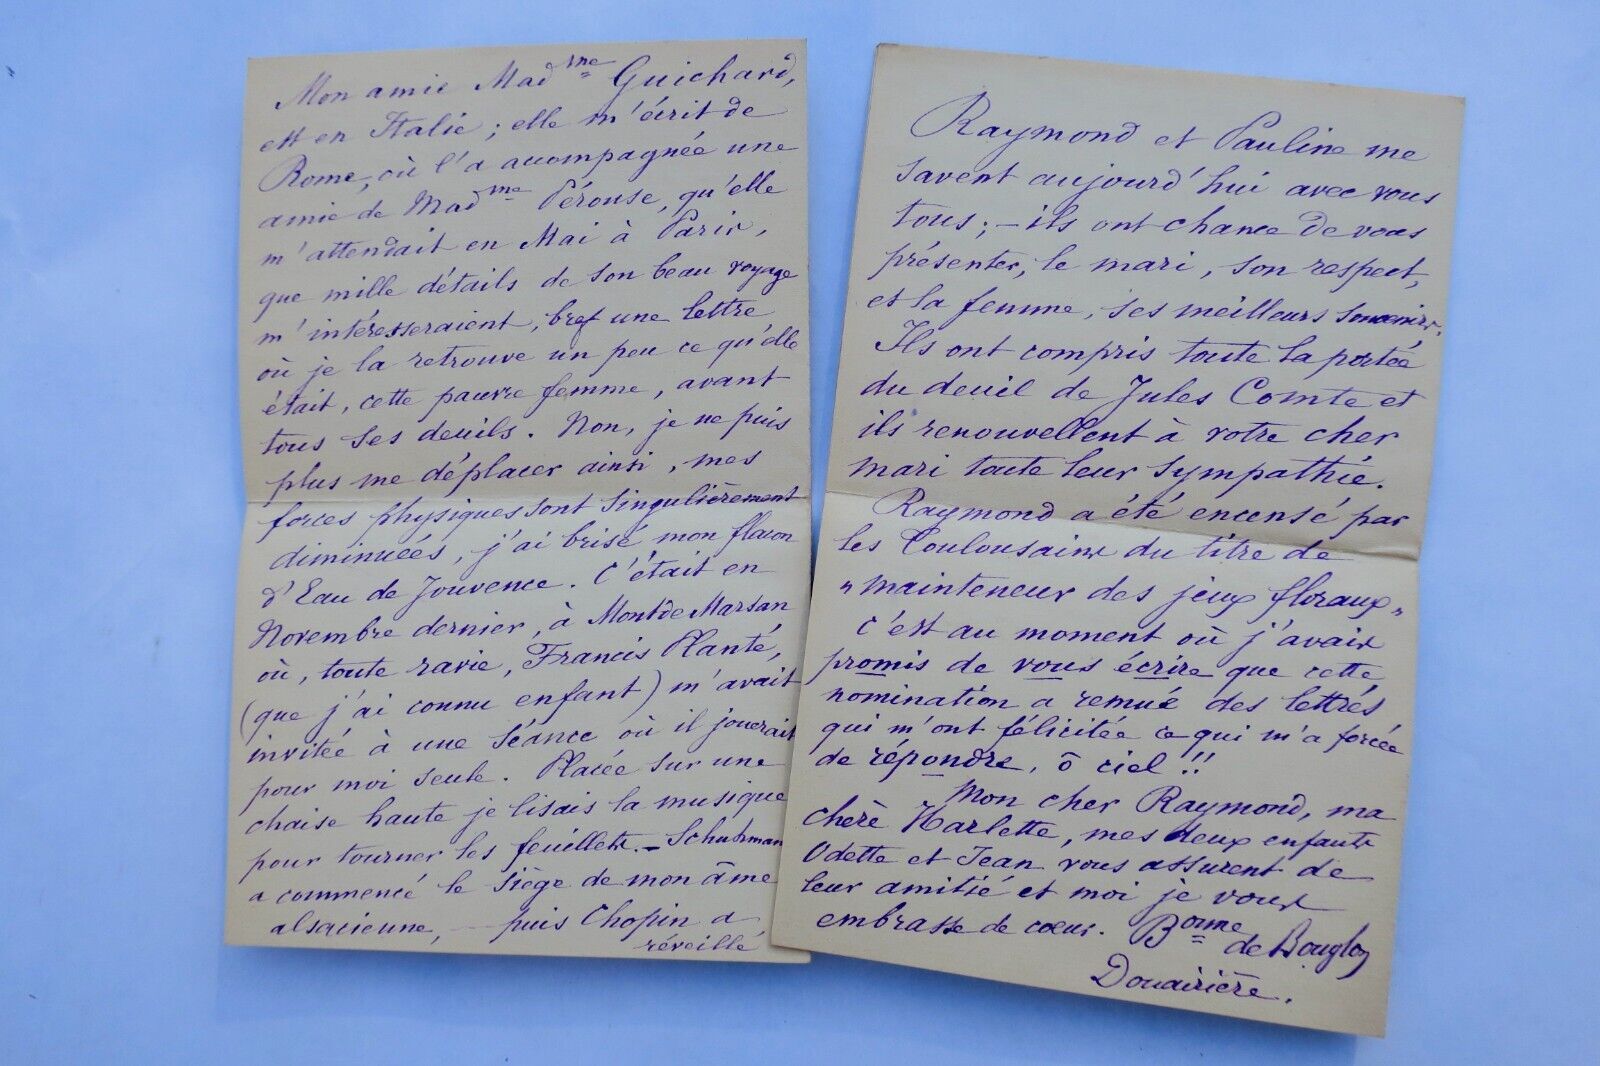 Mon amie Mad^me Guichard,
est en Italie ; elle m'écrit de
Rome, où l'a accompagnée une
amie de Mad^me Pérouse, qu'elle
m'attendait en Mai à Paris,
que mille détails de son beau voyage
m'intéresseraient, bref une lettre
où je la retrouve un peu ce qu'elle
était, cette pauvre femme, avant
tous ses deuils. Non, je ne puis
plus me déplacer ainsi, mes
forces physiques sont singulièrement
diminuées, j'ai brisé mon flacon
d'Eau de Jouvence. C'était en
Novembre dernier, à Mont de Marsan
où, toute ravie, Francis Planté,
(que j'ai connu enfant) m'avait
invitée à une Séance où il jouerait
pour moi seule. Placée sur une
chaise haute je lisais la musique
pour tourner les feuillets. – Schuhman
a commencé le siège de mon âme
alsacienne, — puis Chopin a
réveillé
Raymond et Pauline me
savent aujourd'hui avec vous
tous ; – ils ont chance de vous
présenter, le mari, son respect,
et la femme, ses meilleurs souvenirs.
Ils ont compris toute la portée
du deuil de Jules Comte et
ils renouvellent à votre cher
mari toute leur sympathie.
Raymond a été encensé par
les Toulousains du titre de
"mainteneur des jeux floraux"
c'est au moment où j'avais
promis de vous écrire que cette
nomination a remué des lettrés
qui m'ont félicitée ce qui m'a forcée
de répondre, ô ciel !!
Mon cher Raymond, ma
chère Harlette, mes deux enfants
Odette et Jean vous assurent de
leur amitié et moi je vous
embrasse de cœur. B^onne
de Bouglon
Douairière.